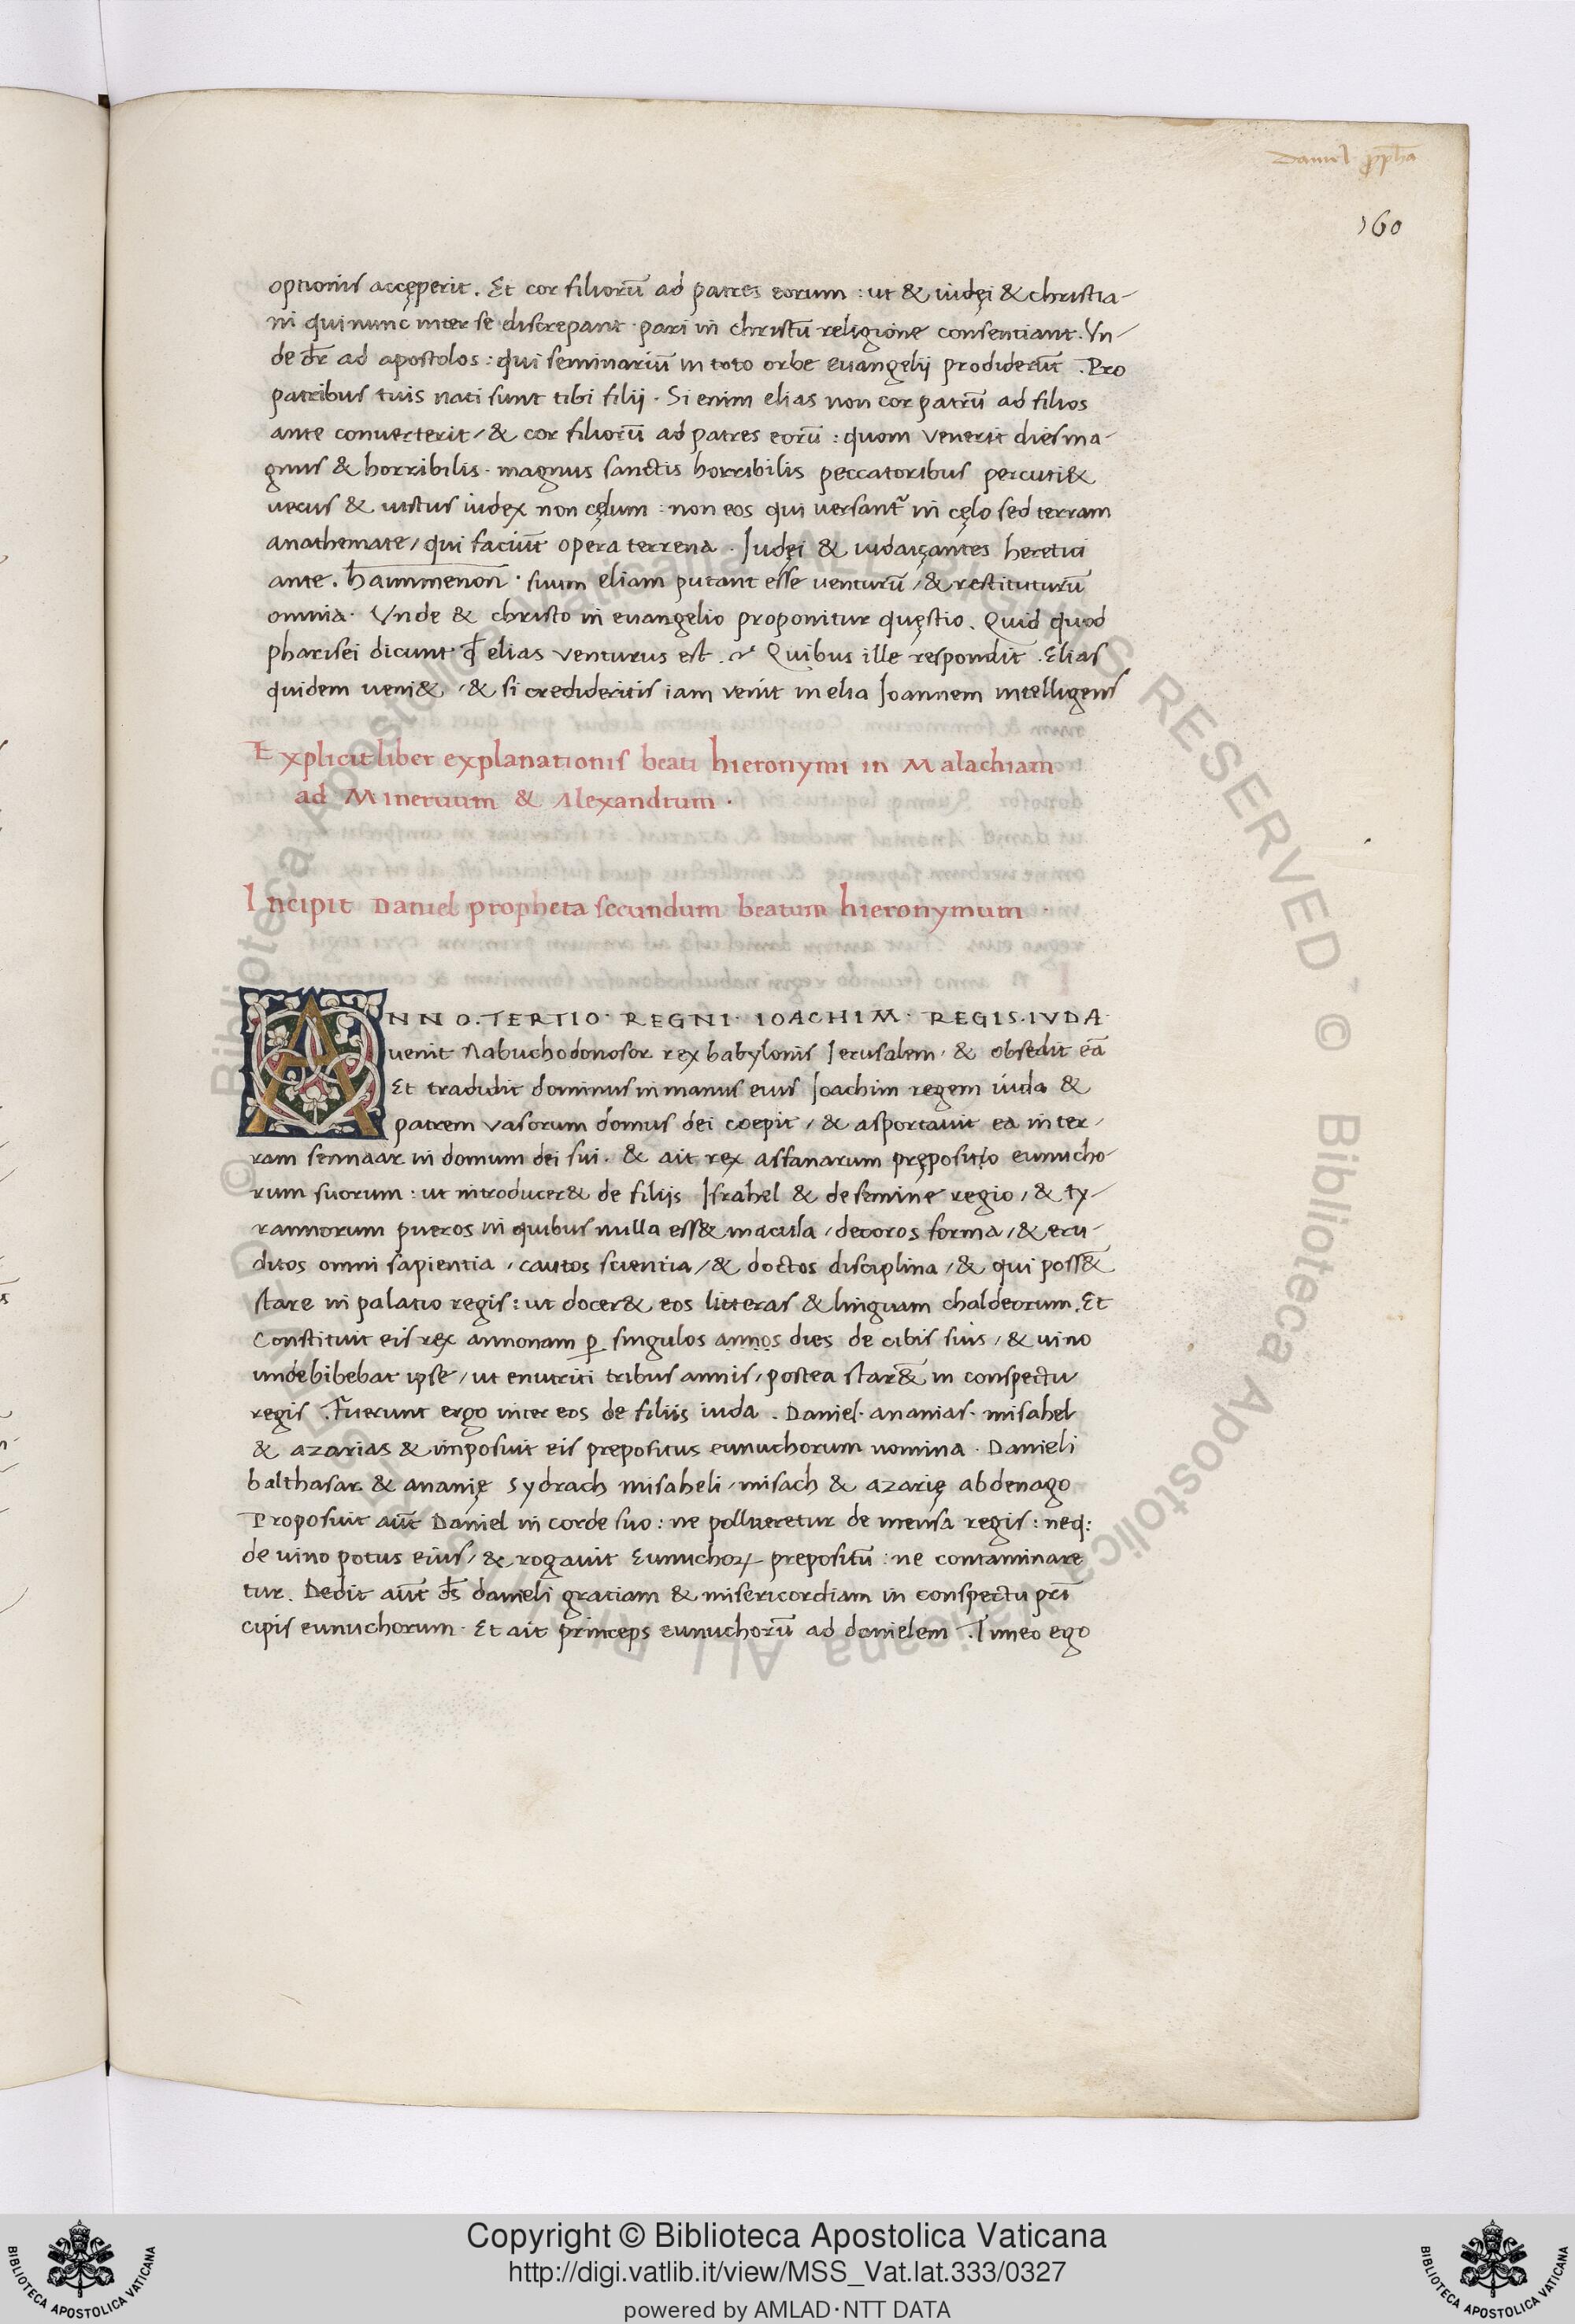 Daniel ꝓph̄a
160
optionis accęperit. Et cor filiorū ad patres eorum : ut & iudęi & christia-
ni qui nunc inter se discrepant · pari in christū religione consentiant. Vn-
de dr̄ ad apostolos : qui seminariū in toto orbe euangelij prodiderūt . Pro
patribus tuis nati sunt tibi filij · Si enim elias non cor patrū ad filios
ante conuerterit / & cor filiorū ad patres eorū : quom venerit dies ma-
gnus & horribilis · magnus sanctis horribilis peccatoribus percuti&
uerus & iustus iudex non cęlum : non eos qui uersant᷑ in cęlo sed terram
anathemate / qui faciūt opera terrena . Iudęi & iudaiçantes heretici
ante . h̄ammenon̄ · suum eliam putant esse uenturū / & restituturū
omnia · Vnde & christo in euangelio proponitur quęstio . Quid quod
pharisei dicunt qđ elias venturus est . Quibus ille respondit . Elias
quidem ueni& / & si credideritis iam venit in elia Ioannem intelligens
Explicit liber explanationis beati hieronymi in Malachiam
ad Mineruum & Alexandrum ·
Incipit Daniel propheta secundum beatum hieronymum ·
ANNO · TERTIO · REGNI · IOACHIM · REGIS · IVDA ·
uenit Nabuchodonosor rex babylonis Ierusalem · & obsedit eā
Et tradidit dominus in manus eius Ioachim regem iuda &
patrem vasorum domus dei coepit / & asportauit ea in ter-
ram sennaar in domum dei sui · & ait rex asfanarum pręposito eunucho-
rum suorum : ut introducer& de filijs Israhel & de semine regio / & ty-
rannorum pueros in quibus nulla ess& macula / decoros forma / & eru-
ditos omni sapientia / cautos scientia / & doctos disciplina / & qui poss&̄
stare in palatio regis : ut docer& eos litteras & linguam chaldeorum . Et
Constituit eis rex annonam ꝑ singulos annos dies de cibis suis / & uino
unde bibebat ipse / ut enutriti tribus annis / postea star&̄ in conspectu
regis . Fuerunt ergo inter eos de filiis iuda . Daniel · ananias · misahel
& azarias & imposuit eis prepositus eunuchorum nomina · Danieli
balthasar & ananię Sydrach misaheli / misach & azarię abdenago
Proposuit aūt Daniel in corde suo : ne pollueretur de mensa regis : neq:
de uino potus eius / & rogauit Eunuchoꝝ prepositū : ne contaminare
tur . Dedit aūt ds̄ danieli gratiam & misericordiam in conspectu prī
cipis eunuchorum · Et ait princeps eunuchorū ad danielem . Timeo ego
Copyright © Biblioteca Apostolica Vaticana
http://digi.vatlib.it/view/MSS_Vat.lat.333/0327
powered by AMLAD·NTT DATA